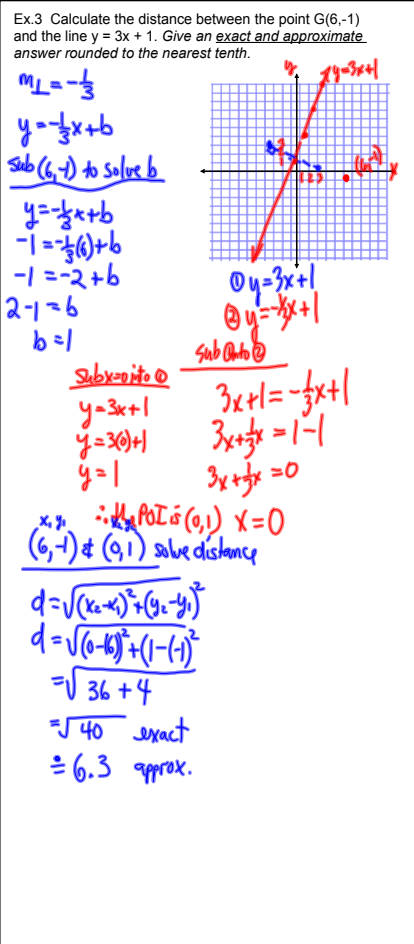 Ex.3 Calculate the distance between the point G(6,-1)
and the line y = 3x + 1. Give an exact and approximate
answer rounded to the nearest tenth.
m⊥ = -1/3
y = -1/3x + b
Sub (6,-1) to solve b
y = -1/3x + b
-1 = -1/3(6) + b
-1 = -2 + b
2 - 1 = b
b = 1
y
y=3x+1
3
1
1 2 3
(6,-1)
x
① y=3x+1
② y=-1/3x+1
Sub ① into ②
3x+1 = -1/3x+1
3x+1/3x = 1-1
3x+1/3x = 0
x=0
Sub x=0 into ①
y=3x+1
y=3(0)+1
y=1
∴ the POI is (0,1)
x₁ y₁ x₂ y₂
(6,-1) & (0,1) solve distance
d = √(x₂-x₁)²+(y₂-y₁)²
d = √(0-(6))²+(1-(-1))²
= √36 + 4
= √40 exact
≐ 6.3 approx.